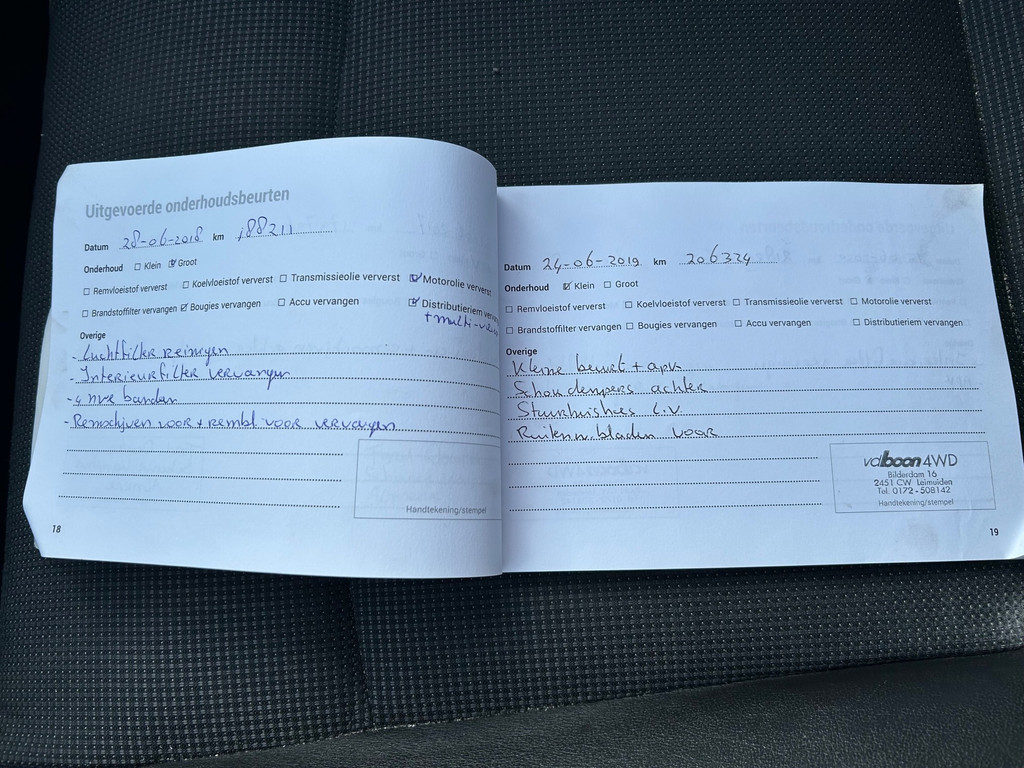 Uitgevoerde onderhoudsbeurten
Datum 28-06-2018 km 188211
Onderhoud Klein Groot
Remvloeistof ververst Koelvloeistof ververst Transmissieolie ververst Motorolie ververst
Brandstoffilter vervangen Bougies vervangen Accu vervangen Distributieriem
+ multi-
Overige
- Luchtfilter reinigen
- Interieurfilter vervangen
- 4 nwe banden
- Remschijven voor + rembl voor vervangen
Handtekening/stempel
18
Datum 24-06-2019 km 206324
Onderhoud Klein Groot
Remvloeistof ververst Koelvloeistof ververst Transmissieolie ververst Motorolie ververst
Brandstoffilter vervangen Bougies vervangen Accu vervangen Distributieriem vervangen
Overige
Kleine beurt + apk
Schokdempers achter
Stuurhuishoes L.V.
Ruitenw.bladen voor
valboon 4WD
Bilderdam 16
2451 CW Leimuiden
Tel. 0172 - 508142
Handtekening/stempel
19